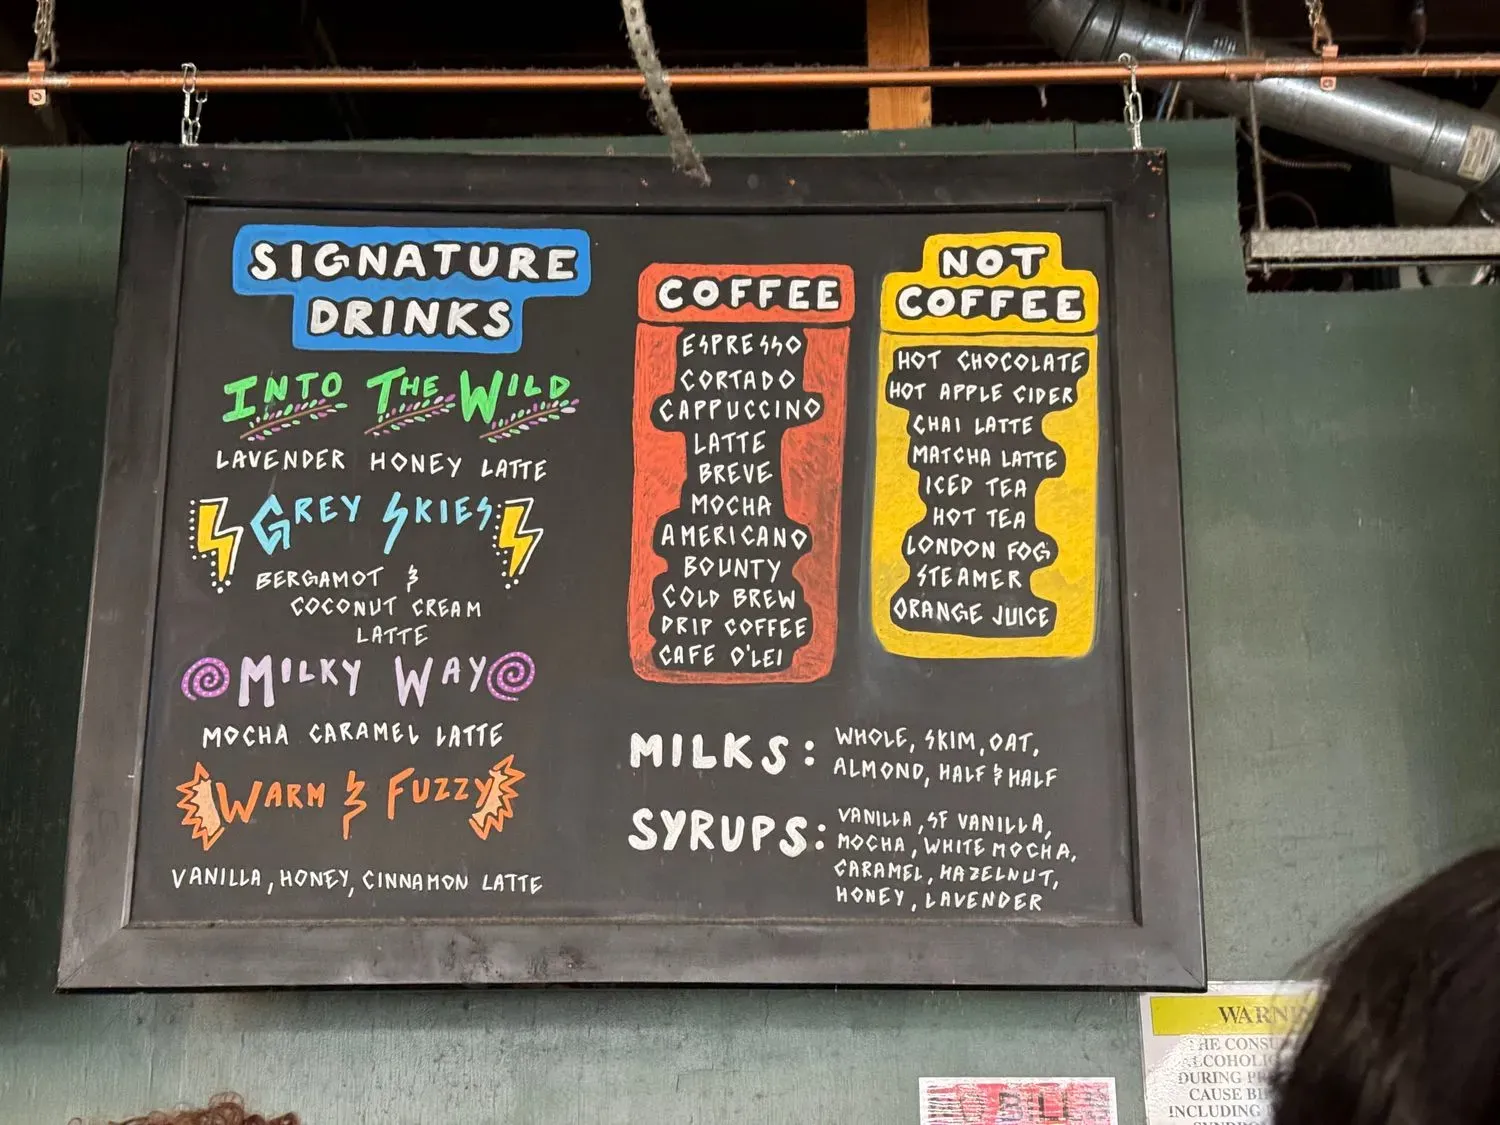 SIGNATURE
DRINKS
INTO THE WILD
LAVENDER HONEY LATTE
GREY SKIES
BERGAMOT &
COCONUT CREAM
LATTE
MILKY WAY
MOCHA CARAMEL LATTE
WARM & FUZZY
VANILLA, HONEY, CINNAMON LATTE
COFFEE
ESPRESSO
CORTADO
CAPPUCCINO
LATTE
BREVE
MOCHA
AMERICANO
BOUNTY
COLD BREW
DRIP COFFEE
CAFE O'LEI
NOT
COFFEE
HOT CHOCOLATE
HOT APPLE CIDER
CHAI LATTE
MATCHA LATTE
ICED TEA
HOT TEA
LONDON FOG
STEAMER
ORANGE JUICE
MILKS: WHOLE, SKIM, OAT,
ALMOND, HALF & HALF
SYRUPS: VANILLA, SF VANILLA,
MOCHA, WHITE MOCHA,
CARAMEL, HAZELNUT,
HONEY, LAVENDER
DURING
CAUSE
INCLUDING